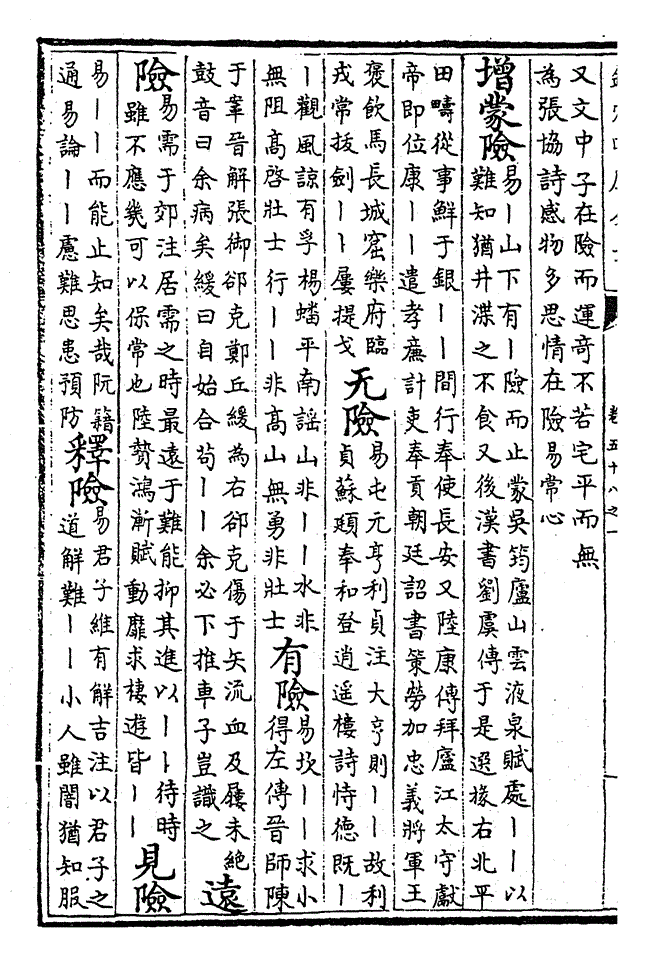 卷五十八之一
又文中子在險而運奇不若宅平而無
為張協詩感物多思情在險易常心
增蒙險
易｜山下有｜險而止蒙吳筠廬山雲液泉賦處｜｜以
難知猶井渫之不食又後漢書劉虞傳于是選掾右北平
田疇從事鮮于銀｜｜間行奉使長安又陸康傳拜廬江太守獻
帝即位康｜｜遣孝廉計吏奉貢朝廷詔書策勞加忠義將軍王
褒飲馬長城窟樂府臨
戎常拔劍｜｜屢提戈
无險
易屯元亨利貞注大亨則｜｜故利
貞蘇頲奉和登逍遥樓詩恃德既｜
｜觀風諒有孚楊蟠平南謡山非｜｜水非
無阻髙啓壯士行｜｜非髙山無勇非壯士
有險
易坎｜｜求小
得左傳晉師陳
于鞌晉解張御郤克鄭丘緩為右郤克傷于矢流血及屨未絶
鼓音曰余病矣緩曰自始合苟｜｜余必下推車子豈識之
遠
險
易需于郊注居需之時最遠于難能抑其進以｜｜待時
雖不應幾可以保常也陸贄鴻漸賦動靡求棲遊皆｜｜
見險
易｜｜而能止知矣哉阮籍
通易論｜｜慮難思患預防
釋險
易君子維有解吉注以君子之
道解難｜｜小人雖闇猶知服